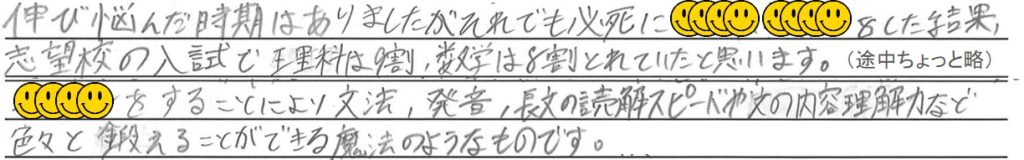 伸び悩んだ時期はありましたがそれでも必死にをした結果,
志望校の入試で理科は9割,数学は8割とれていたと思います。(途中ちょっと略)
をすることにより文法,発音,長文の読解スピードや文の内容理解力など
色々と鍛えることができる魔法のようなものです。